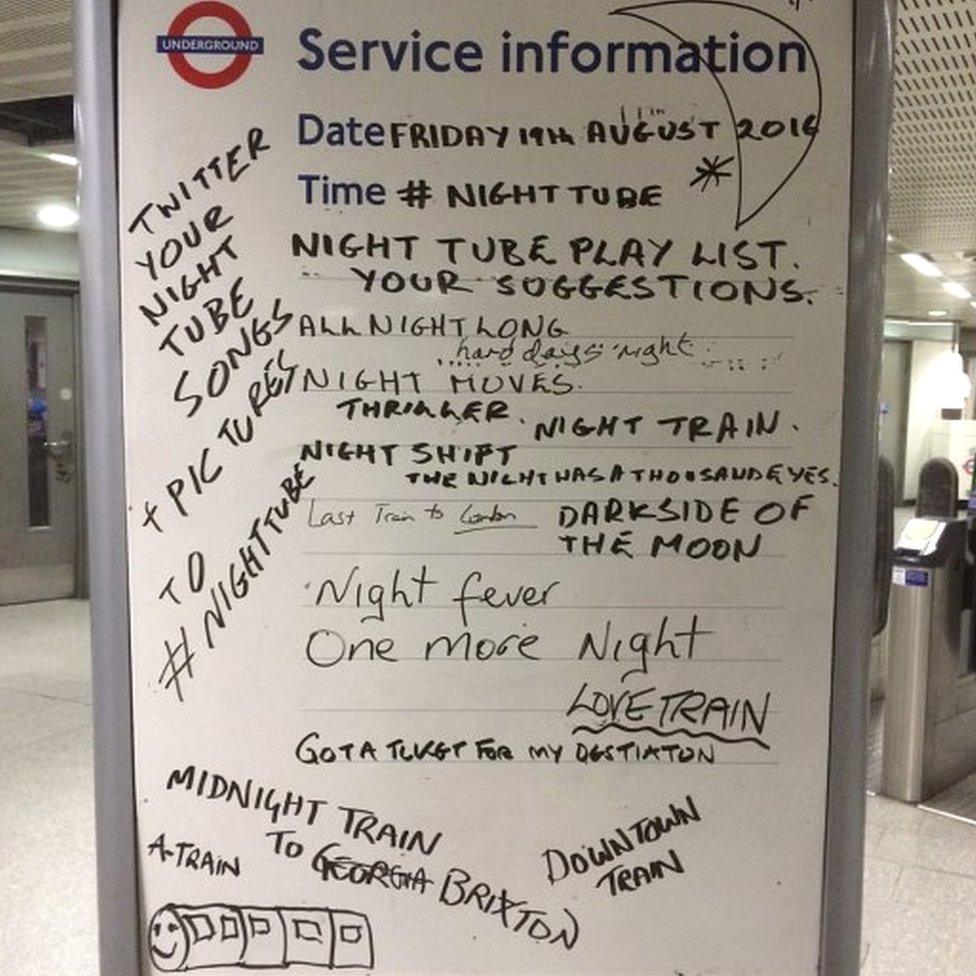 UNDERGROUND
Service information
Date FRIDAY 19th AUGUST 2016
Time # NIGHT TUBE
NIGHT TUBE PLAY LIST.
YOUR SUGGESTIONS.
ALL NIGHT LONG
hard days night
NIGHT MOVES.
THRILLER.
NIGHT TRAIN.
NIGHT SHIFT
THE NIGHT HAS A THOUSAND EYES.
Last Train to London
DARKSIDE OF
THE MOON
Night fever
One more Night
LOVE TRAIN
GOT A TICKET FOR MY DESTIATON
MIDNIGHT TRAIN
TO GEORGIA BRIXTON
A-TRAIN
DOWNTOWN
TRAIN
TWITTER
YOUR
NIGHT
TUBE
SONGS
+ PICTURES
TO
# NIGHT TUBE